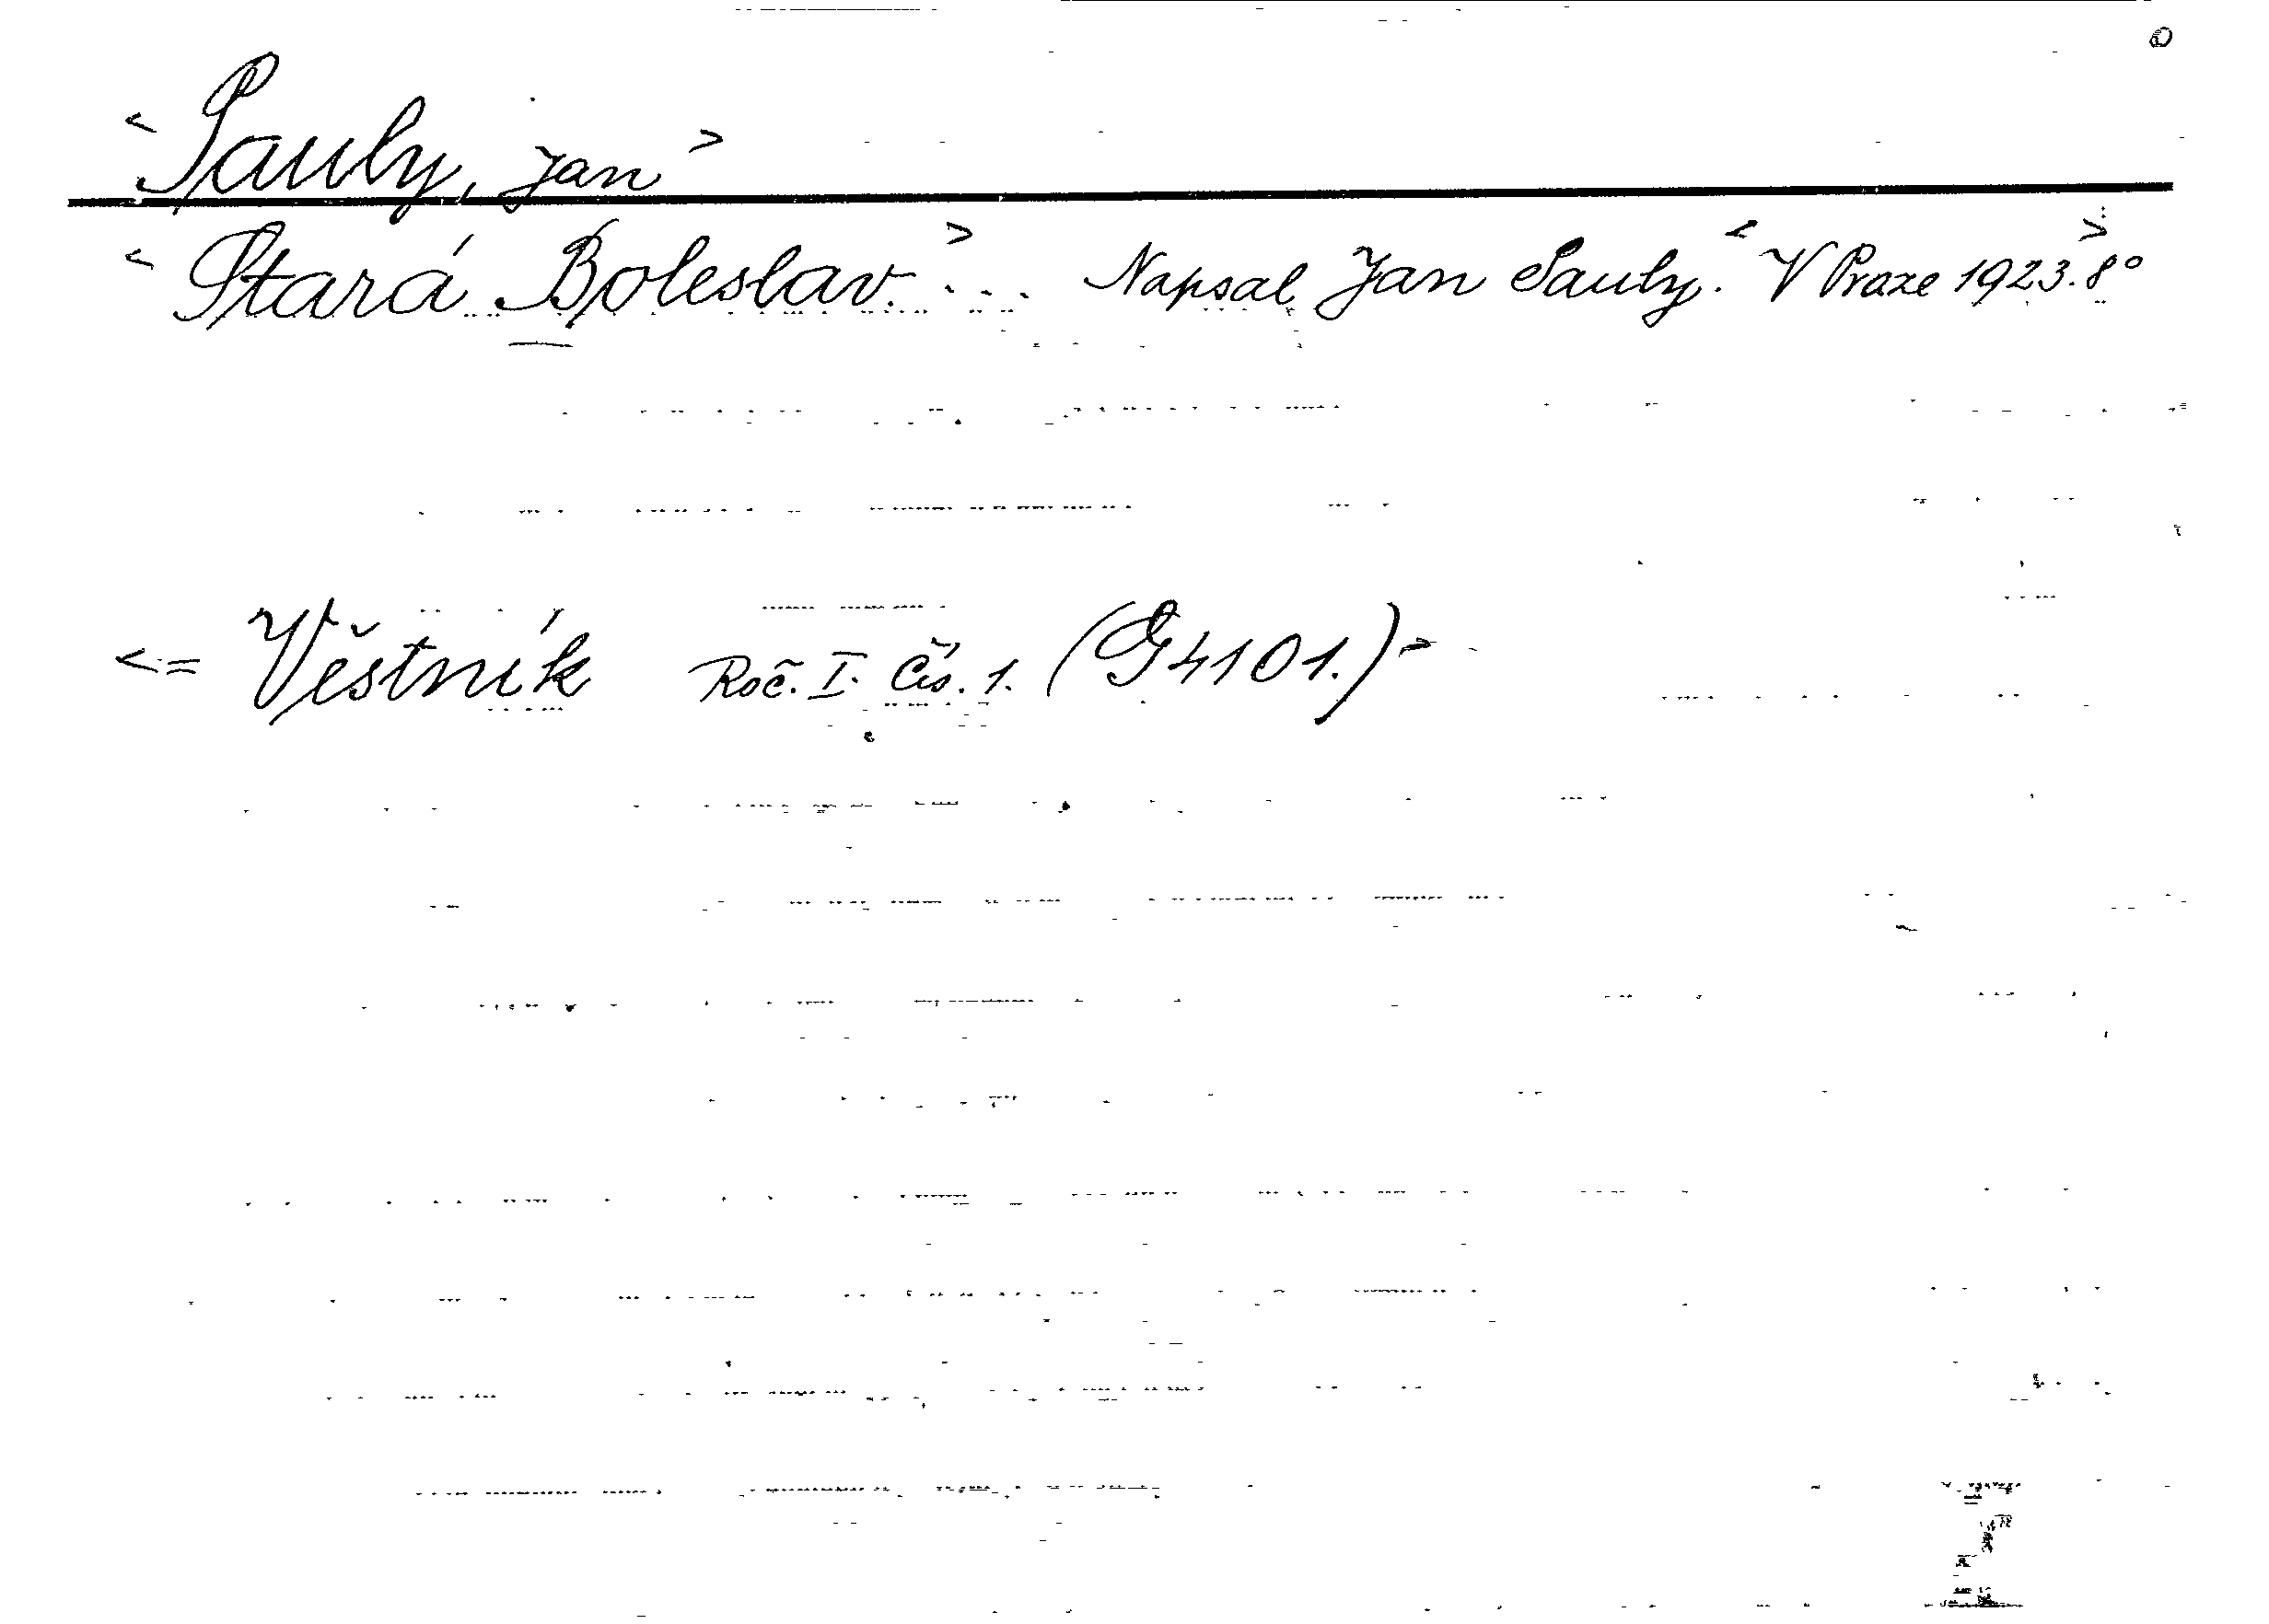 <Pauly, Jan>
<Stará Boleslav.>... Napsal Jan Pauly. <V Praze 1923.> 8°
<= Věstník Roč. I. Čís. 1. (G 4101.)>